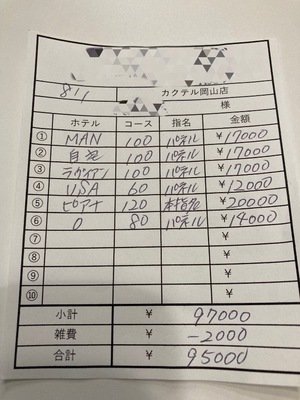 8/1
カクテル岡山店
様
ホテル コース 指名 金額
① MAN 100 パネル ¥17000
② 自宅 100 パネル ¥17000
③ ラヴィアン 100 パネル ¥17000
④ USA 60 パネル ¥12000
⑤ ピアナ 120 本指名 ¥20000
⑥ O 80 パネル ¥14000
⑦ ¥
⑧ ¥
⑨ ¥
⑩ ¥
小計 ¥ 97000
雑費 ¥ -2000
合計 ¥ 95000